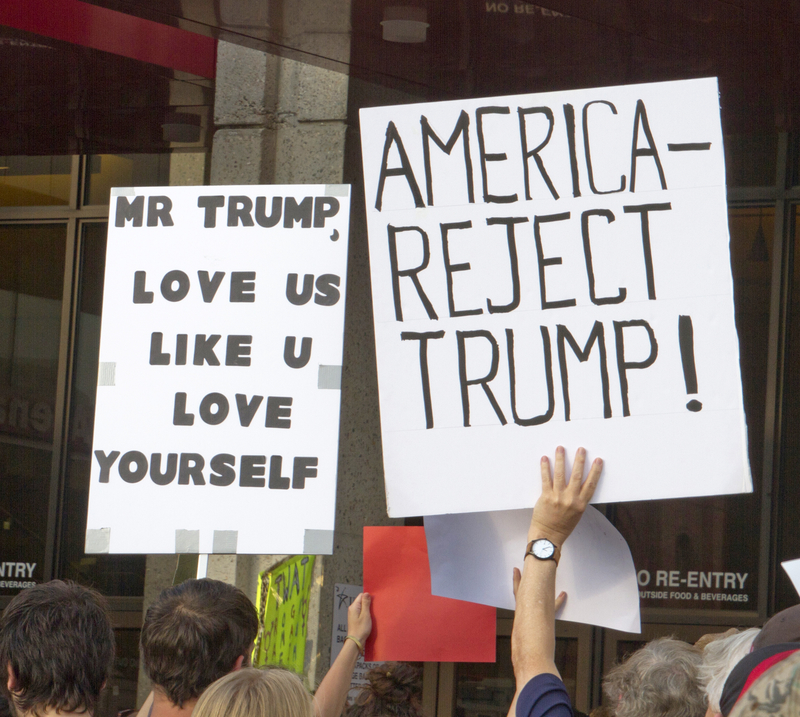 MR TRUMP,
LOVE US
LIKE U
LOVE
YOURSELF
AMERICA—
REJECT
TRUMP!
NTRY
EVERAGES
O RE-ENTRY
UTSIDE FOOD & BEVERAGES
NO RE-EN